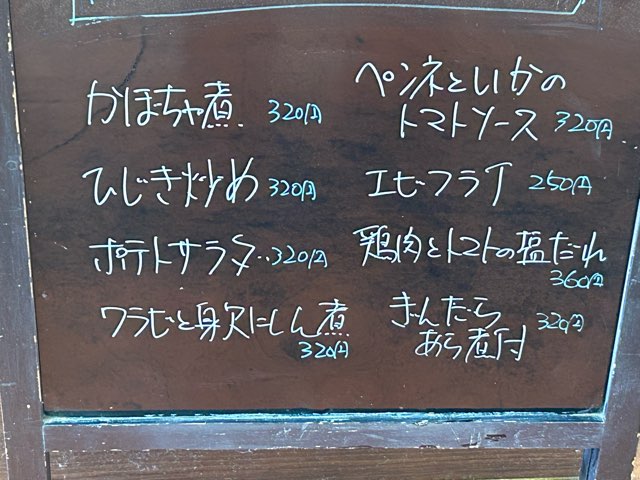 かぼちゃ煮 320円
ひじき炒め 320円
ポテトサラダ 320円
ワラビと身欠にしん煮
320円
ペンネといかの
トマトソース 320円
エビフライ 250円
鶏肉とトマトの塩だれ
360円
ぎんだら 320円
あら煮付